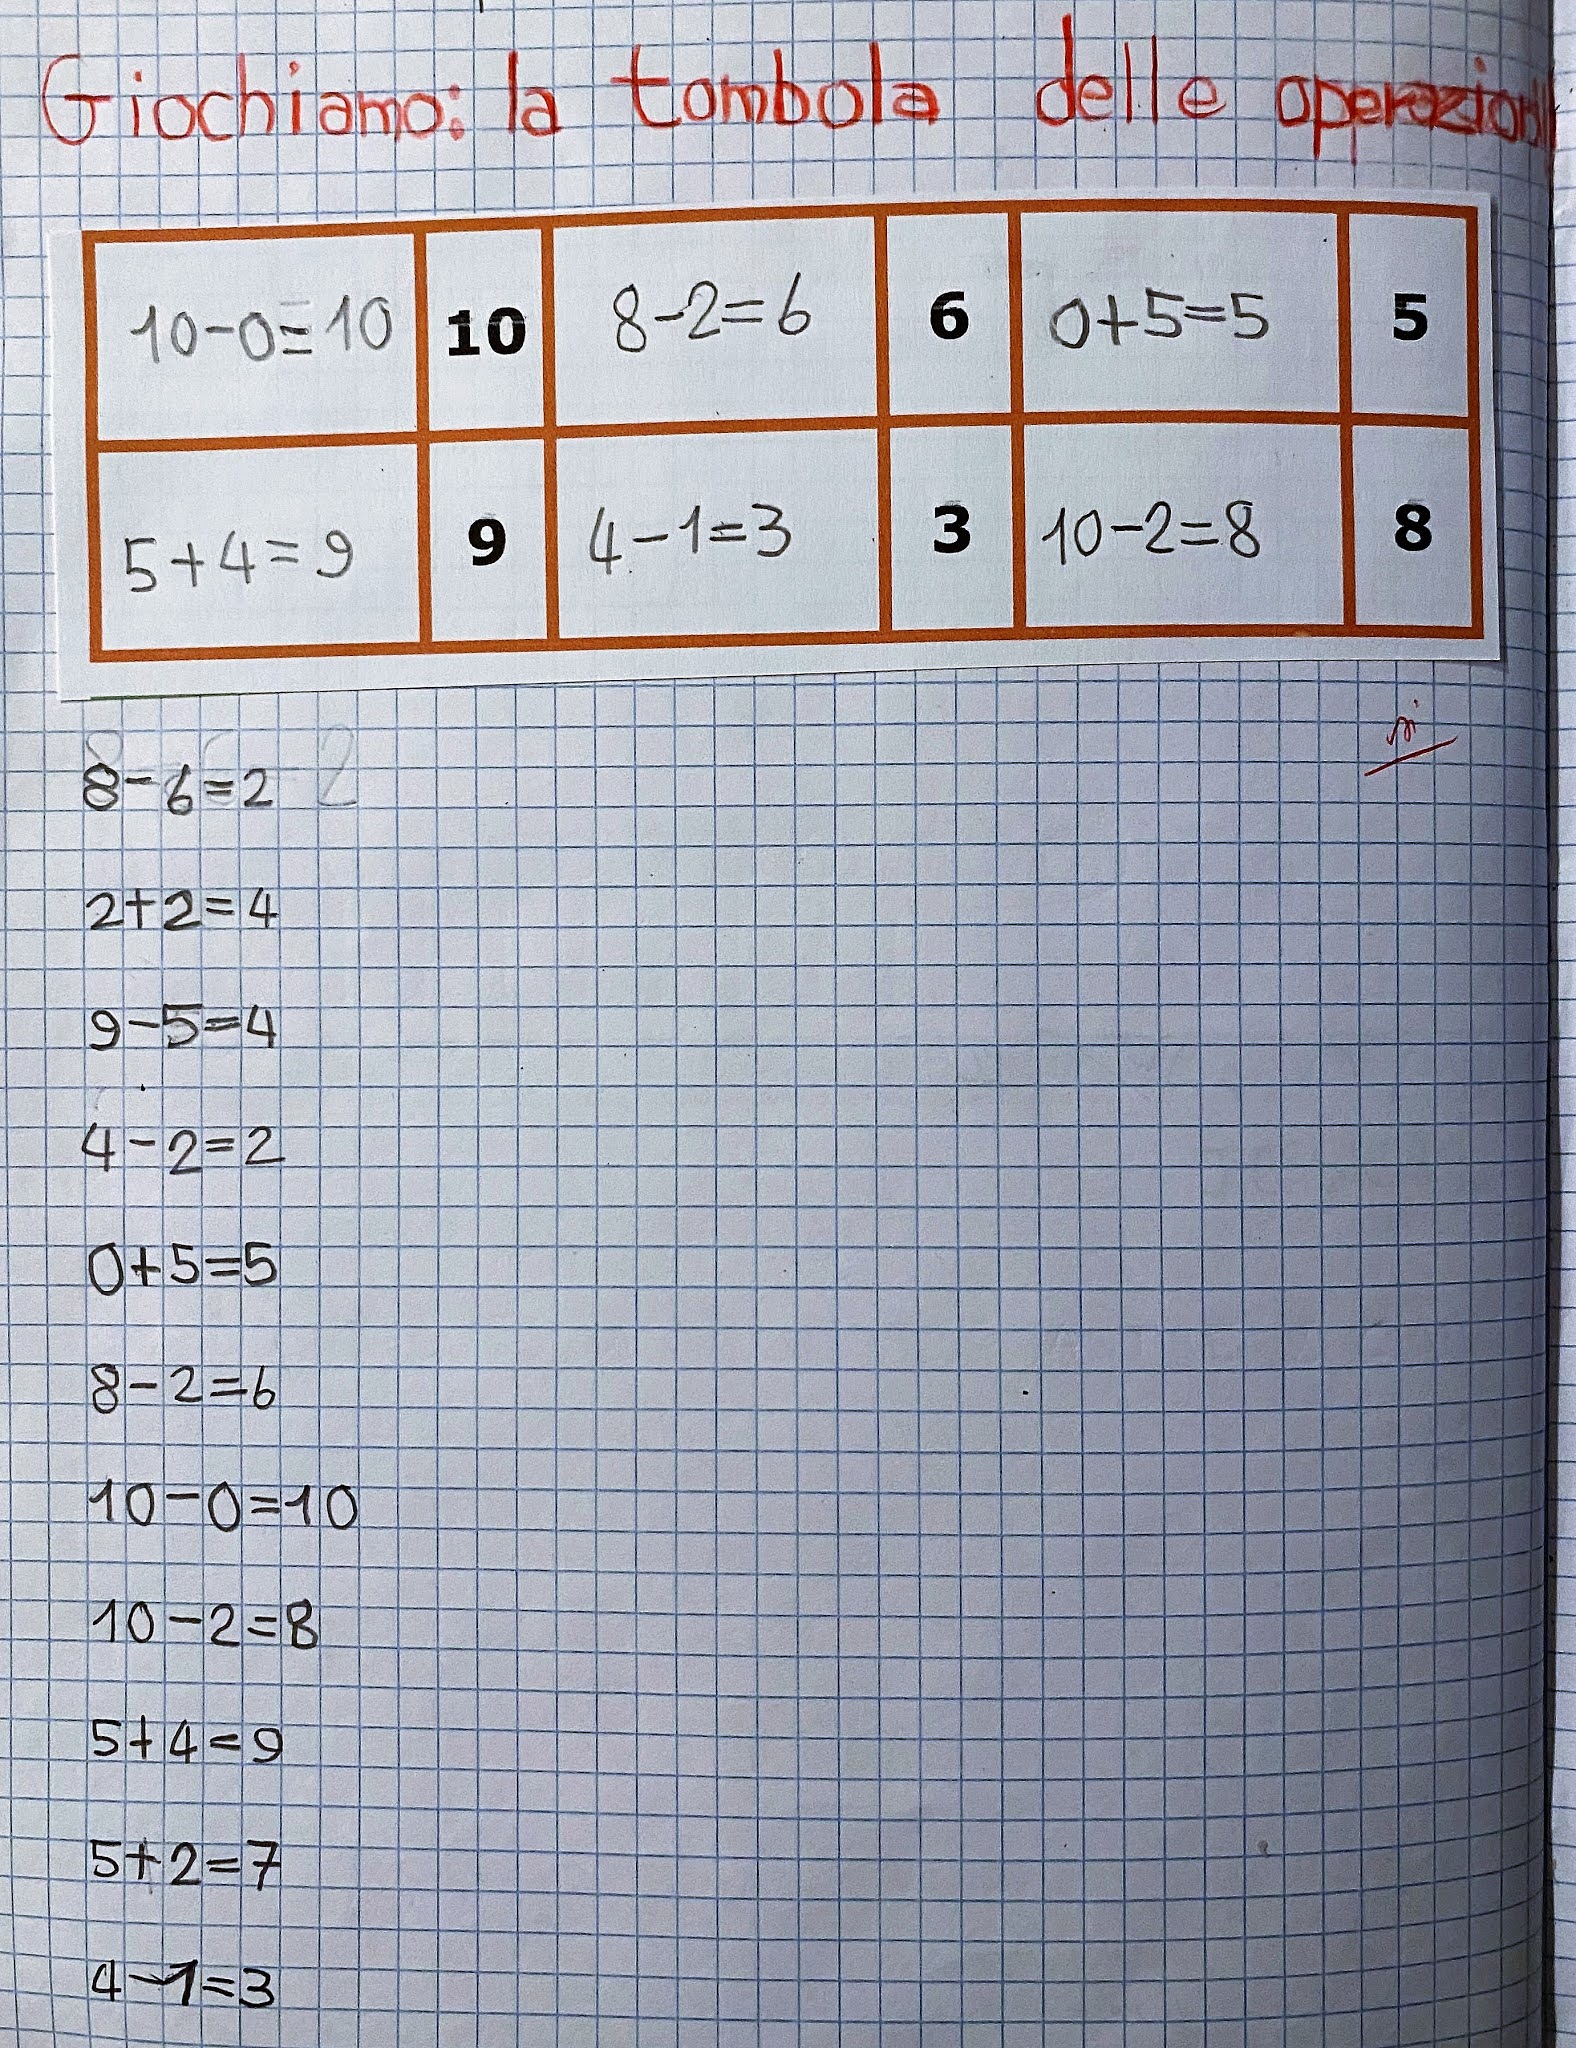 Giochiamo: la tombola delle operazioni
10-0=10 10 8-2=6 6 0+5=5 5
5+4=9 9 4-1=3 3 10-2=8 8
8-6=2
2+2=4
9-5=4
4-2=2
0+5=5
8-2=6
10-0=10
10-2=8
5+4=9
5+2=7
4-1=3